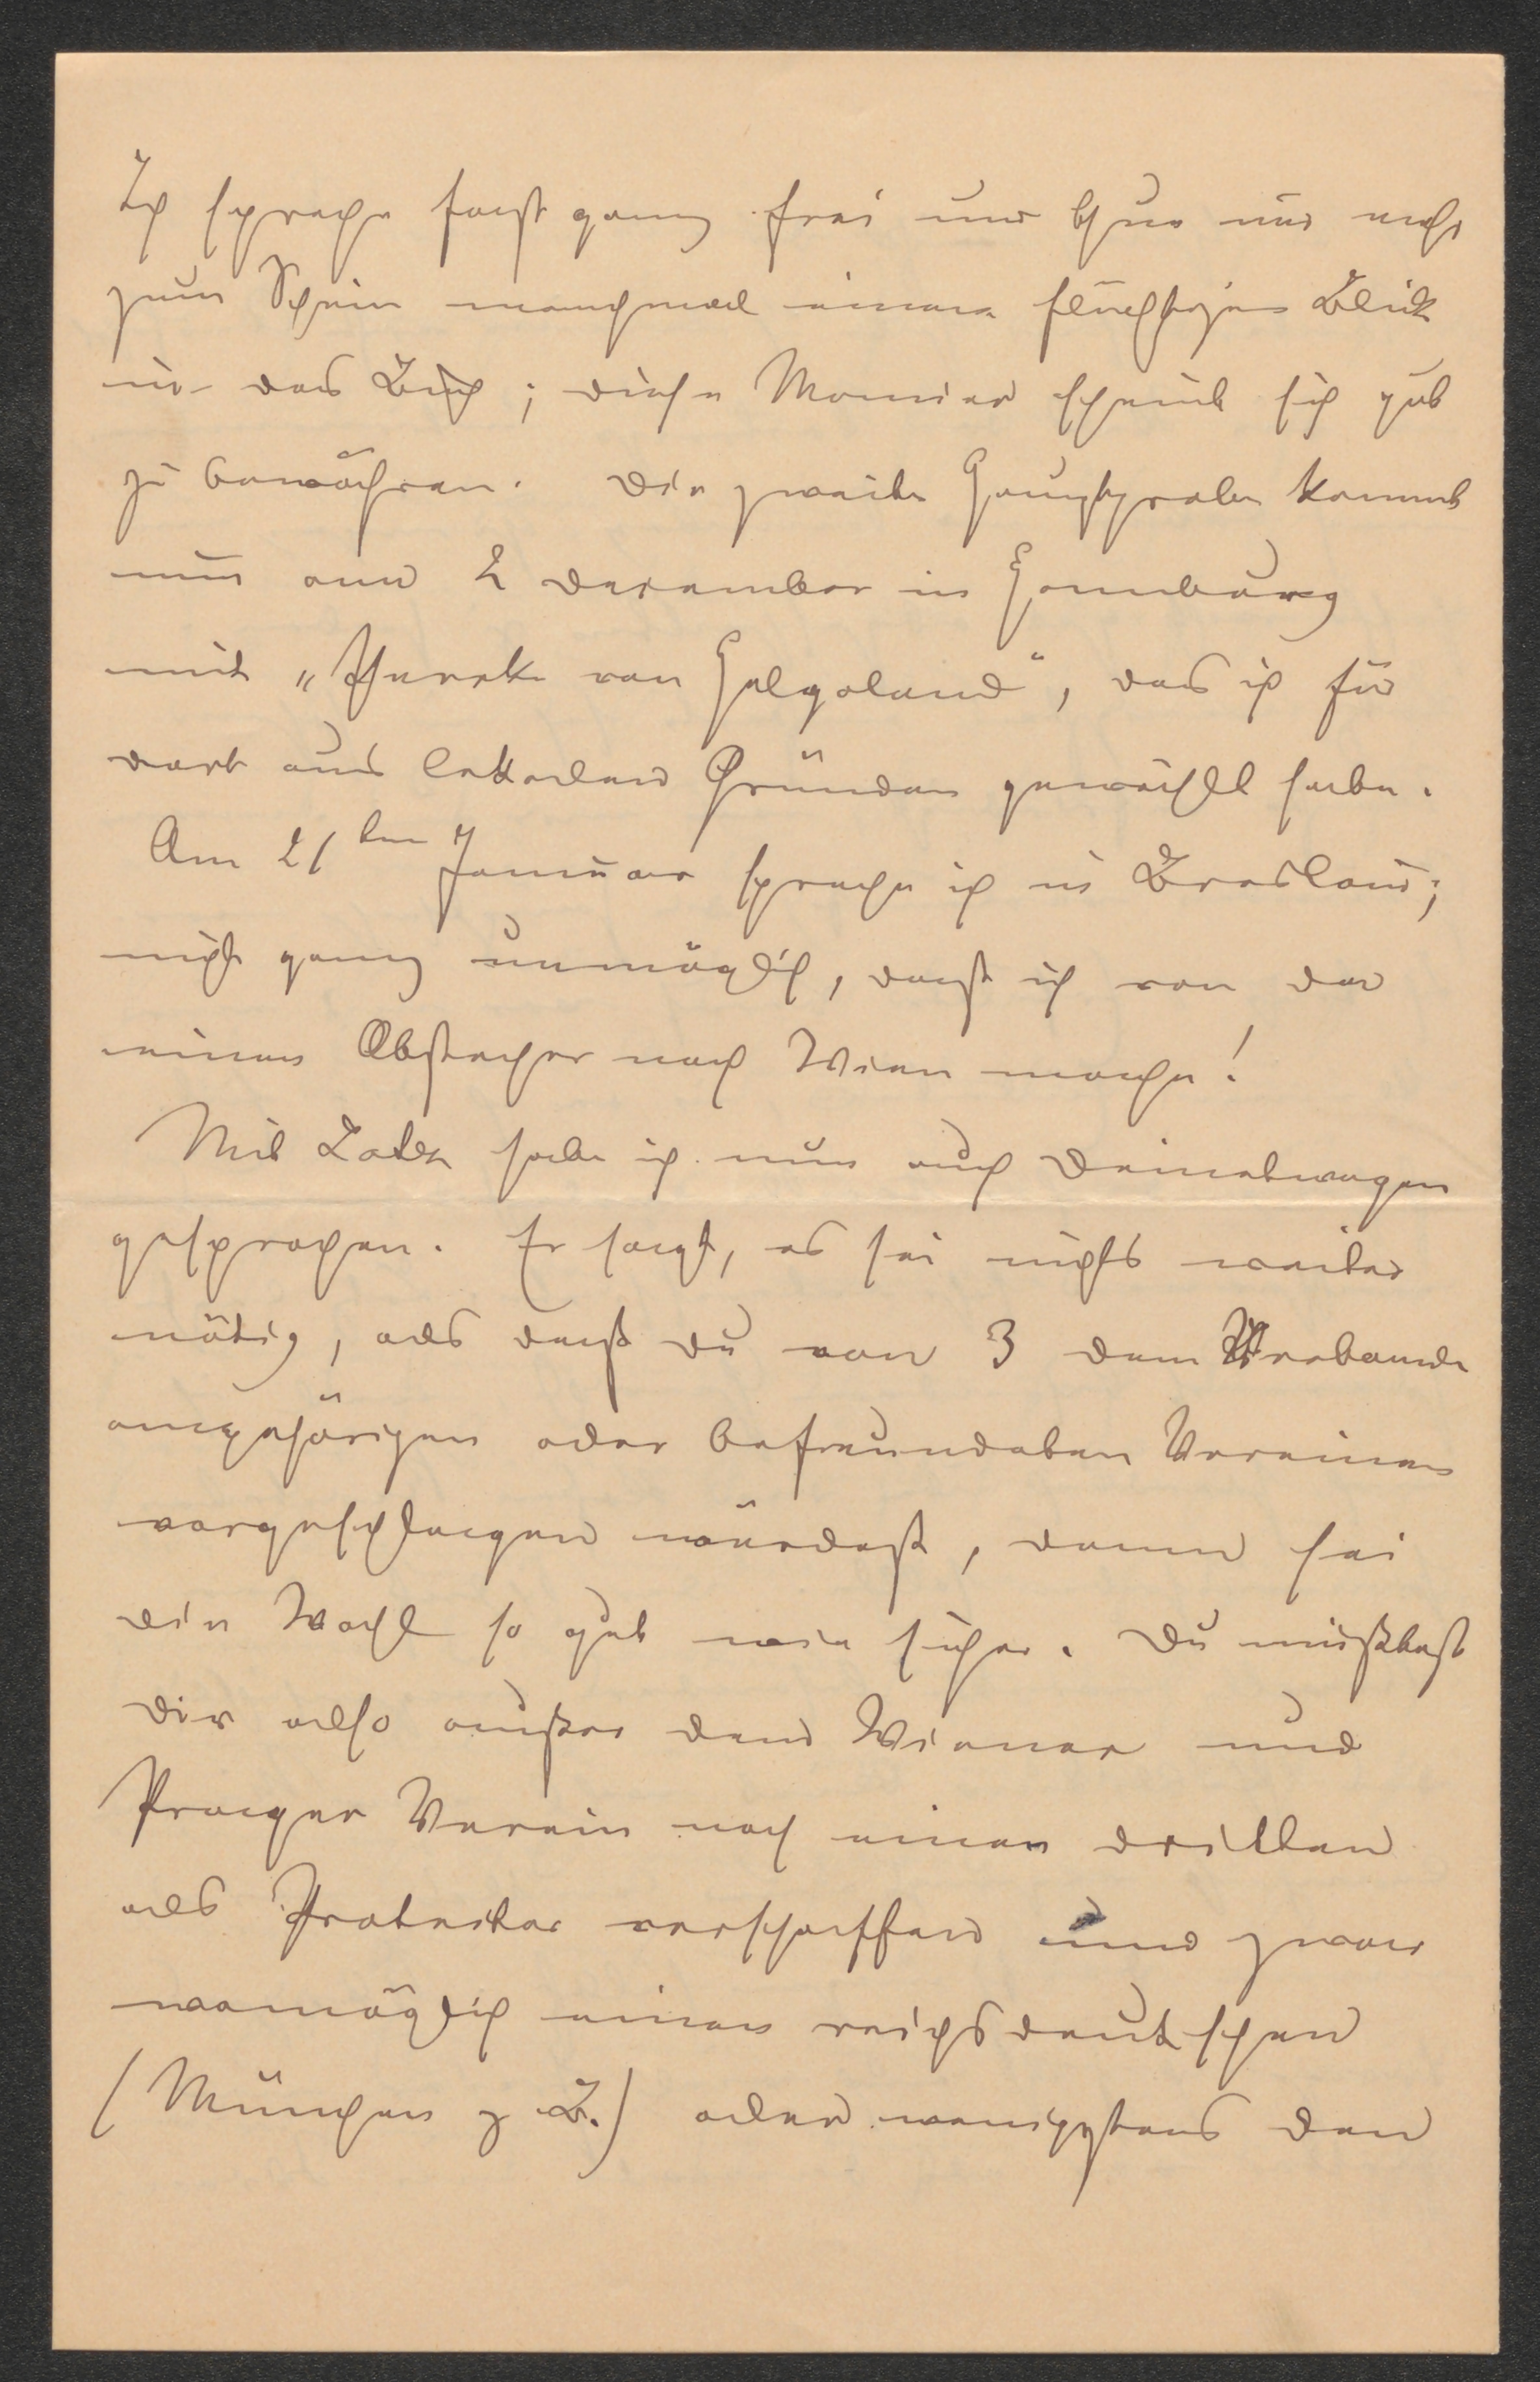 Ich spreche fast ganz frei und thue nur mehr
zum Schein manchmal einen flüchtigen Blick
in das Buch; diese Manier scheint sich gut
zu bewähren. Die zweite Hauptprobe kommt
nun am 2 Dezember in Hamburg
mit „ von Helgoland", das ich für
dort aus lokalen Gründen gewählt habe.
Am 21ten Januar spreche ich in Breslau;
nicht ganz unmöglich, daß ich von da
einen Abstecher nach Wien mache!
Mit habe ich nun auch Deinetwegen
gesprochen. Er sagt, es sei nichts weiter
nötig, als daß Du von 3 dem Verbande
angehörigen oder befreundeten Vereinen
vorgeschlagen würdest, dann sei
die Wahl so gut wie sicher. Du müßtest
Dir also außer dem Wiener und
Prager Verein noch einen dritten
als Protektor verschaffen und zwar
womöglich einen reichsdeutschen
(München z B.) oder wenigstens den